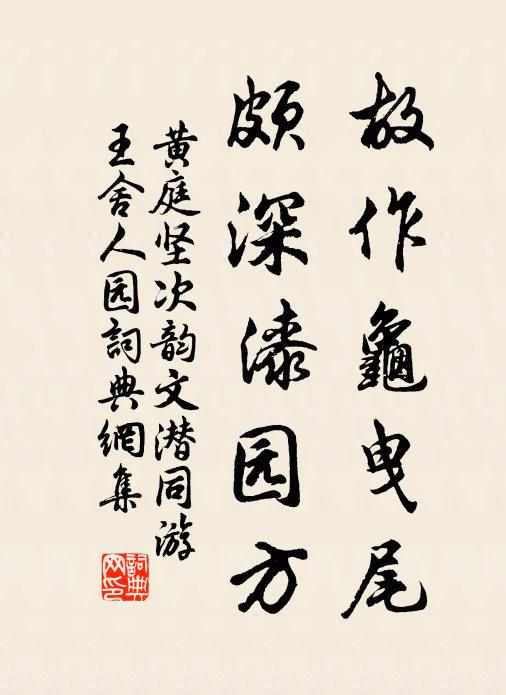 故作龜曳尾
頗深漆园方
黄庭坚次韵文潜同游
王舍人园詞典網集
詞典网印